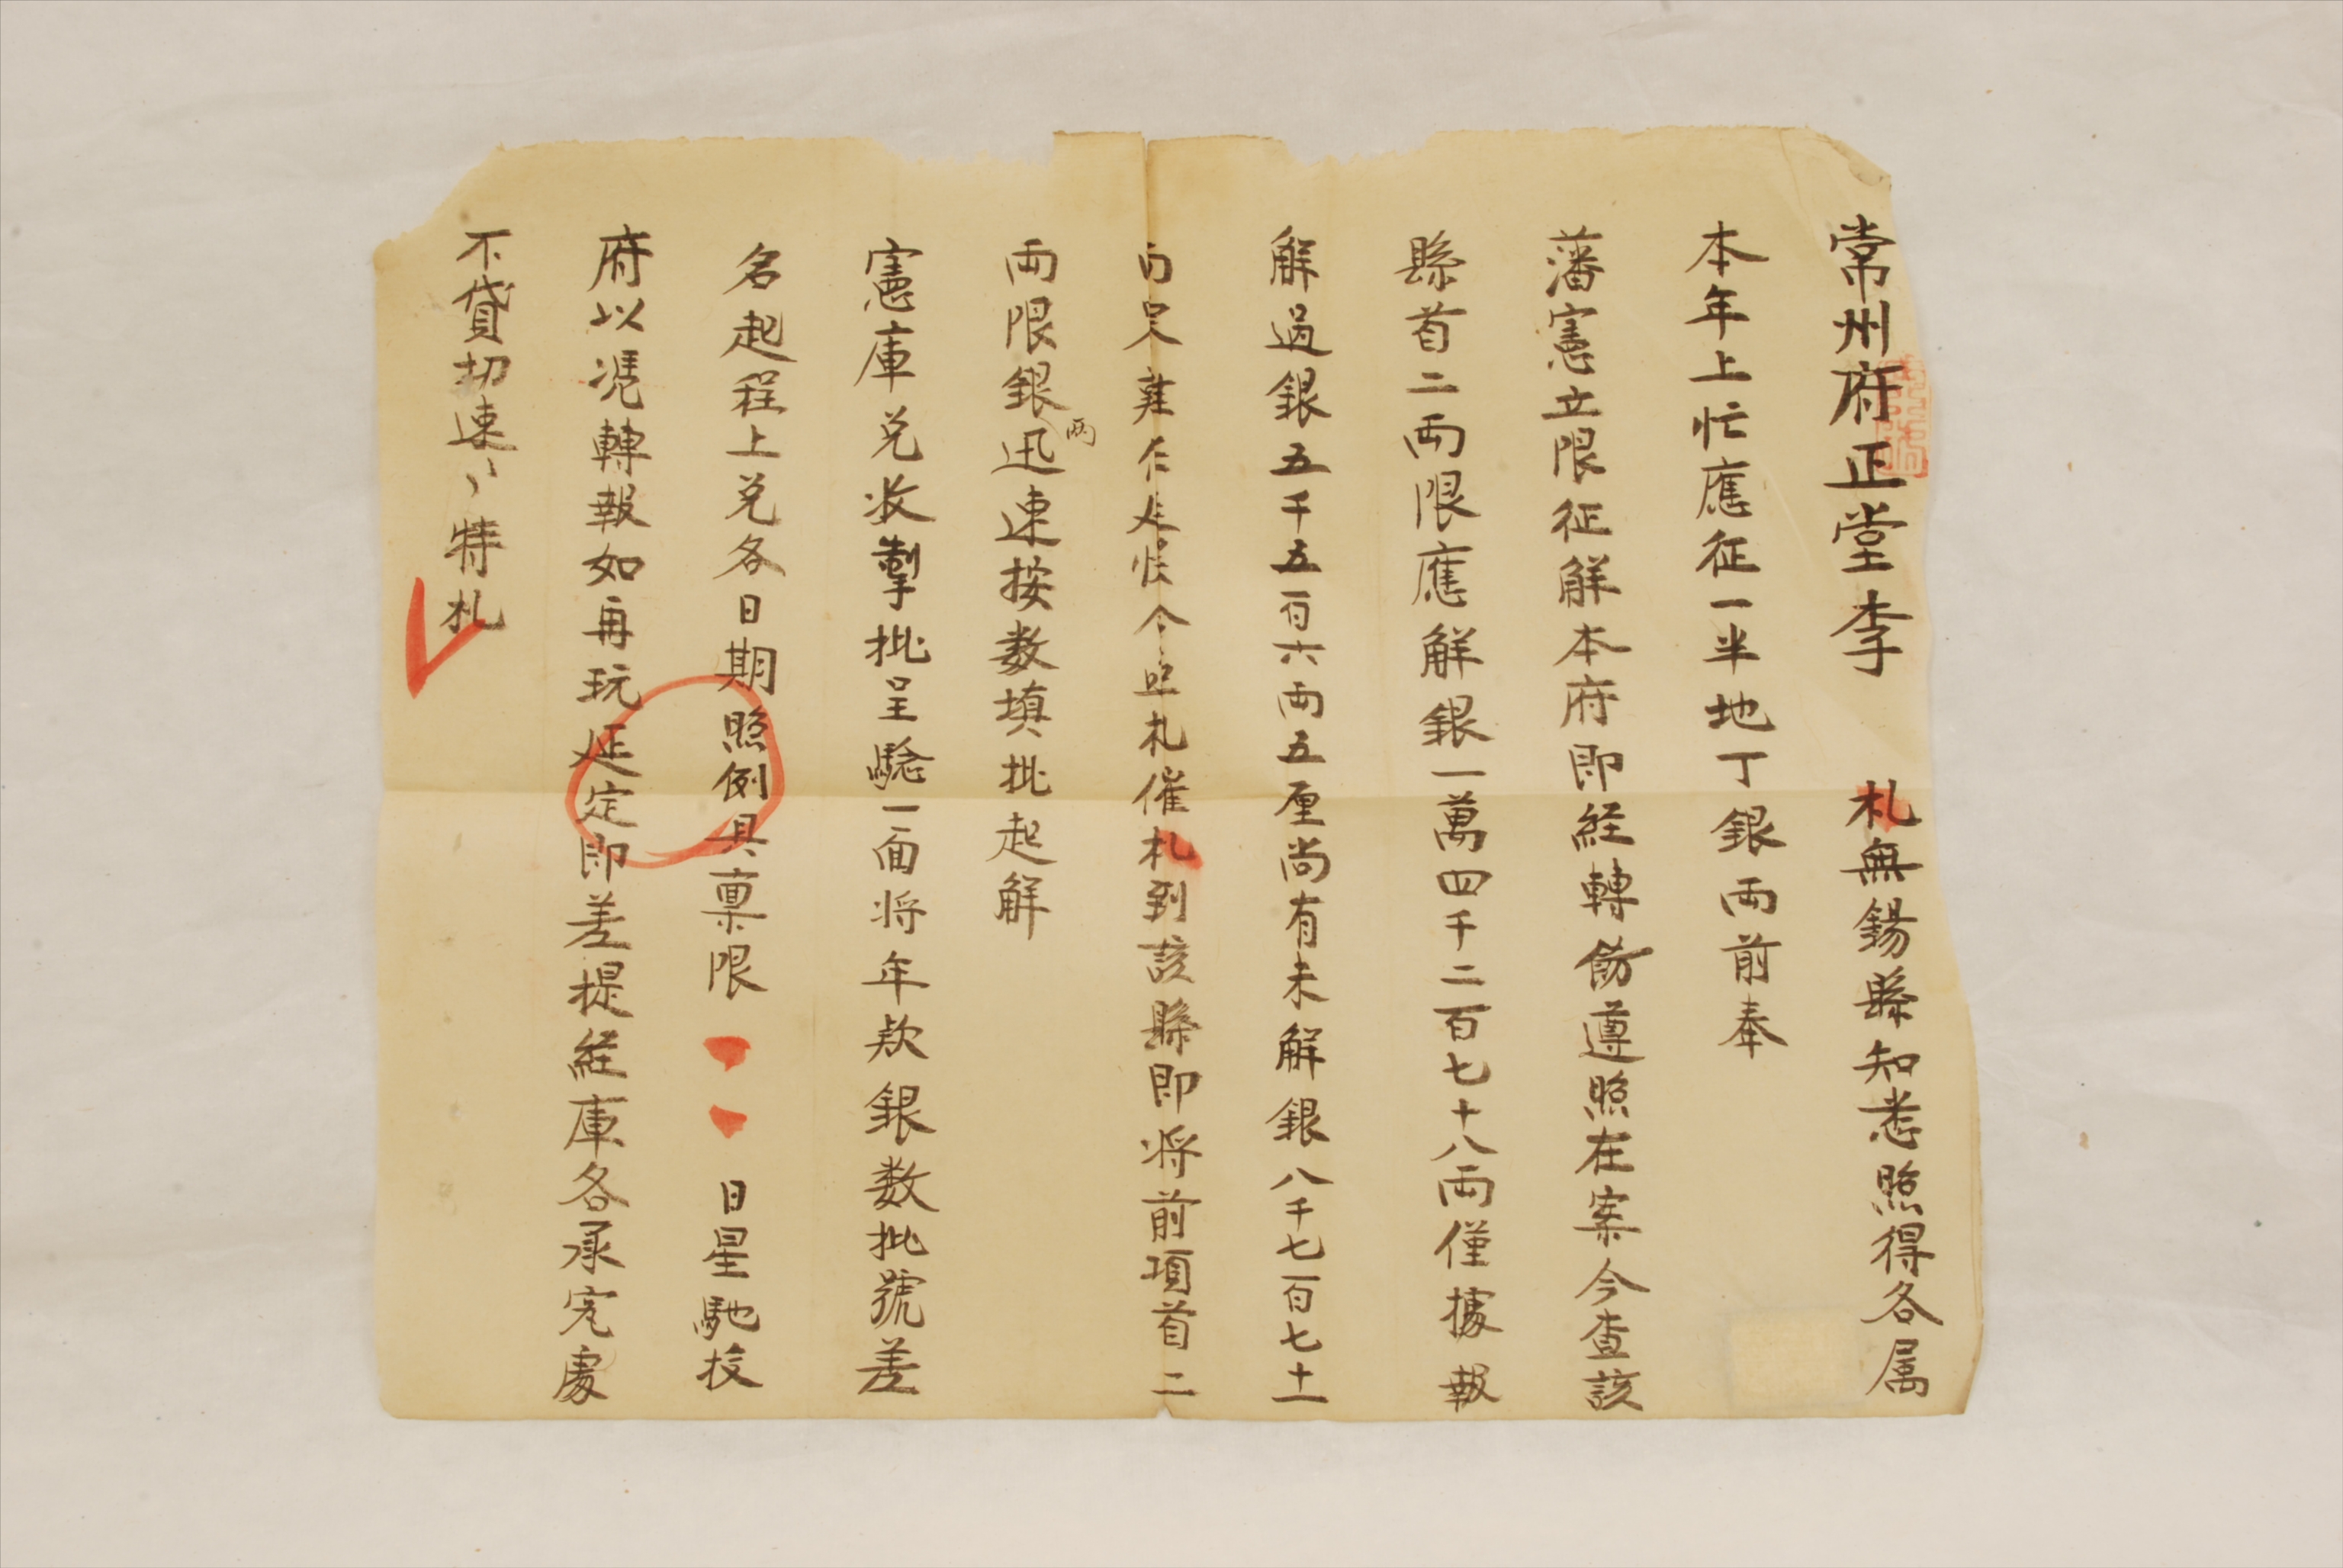 常州府正堂李　札無錫縣知悉照得各属
本年上忙應征一半地丁銀兩前奉
藩憲立限征解本府即経轉飭遵照在案今查該
縣首二兩限應解銀一萬四千二百七十八兩僅據報
解過銀五千五百六兩五厘尚有未解銀八千七百七十一
札催札到該縣即将前項首二
兩限銀兩迅速按数填批起解
憲庫兑收掣批呈驗一面将年欵銀数批號差
名起程上兑各日期照例具禀限　日星馳投
府以凴轉報如再玩延定即差提経庫各承究處
不貸切速〻特札